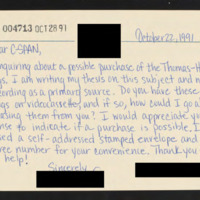 004713 OCT 28 91
October 22, 1991
ear C-SPAN,
nquiring about a possible purchase of the Thomas-H
gs. I am writing my thesis on this subject and n
cording as a primary source. Do you have these
gs on videocassette, and if so, how could I go a
asing them from you? I would appreciate you
onse to indicate if a purchase is possible. I
sed a self-addressed stamped envelope and
ree number for your convenience. Thank you
help!
Sincerely,